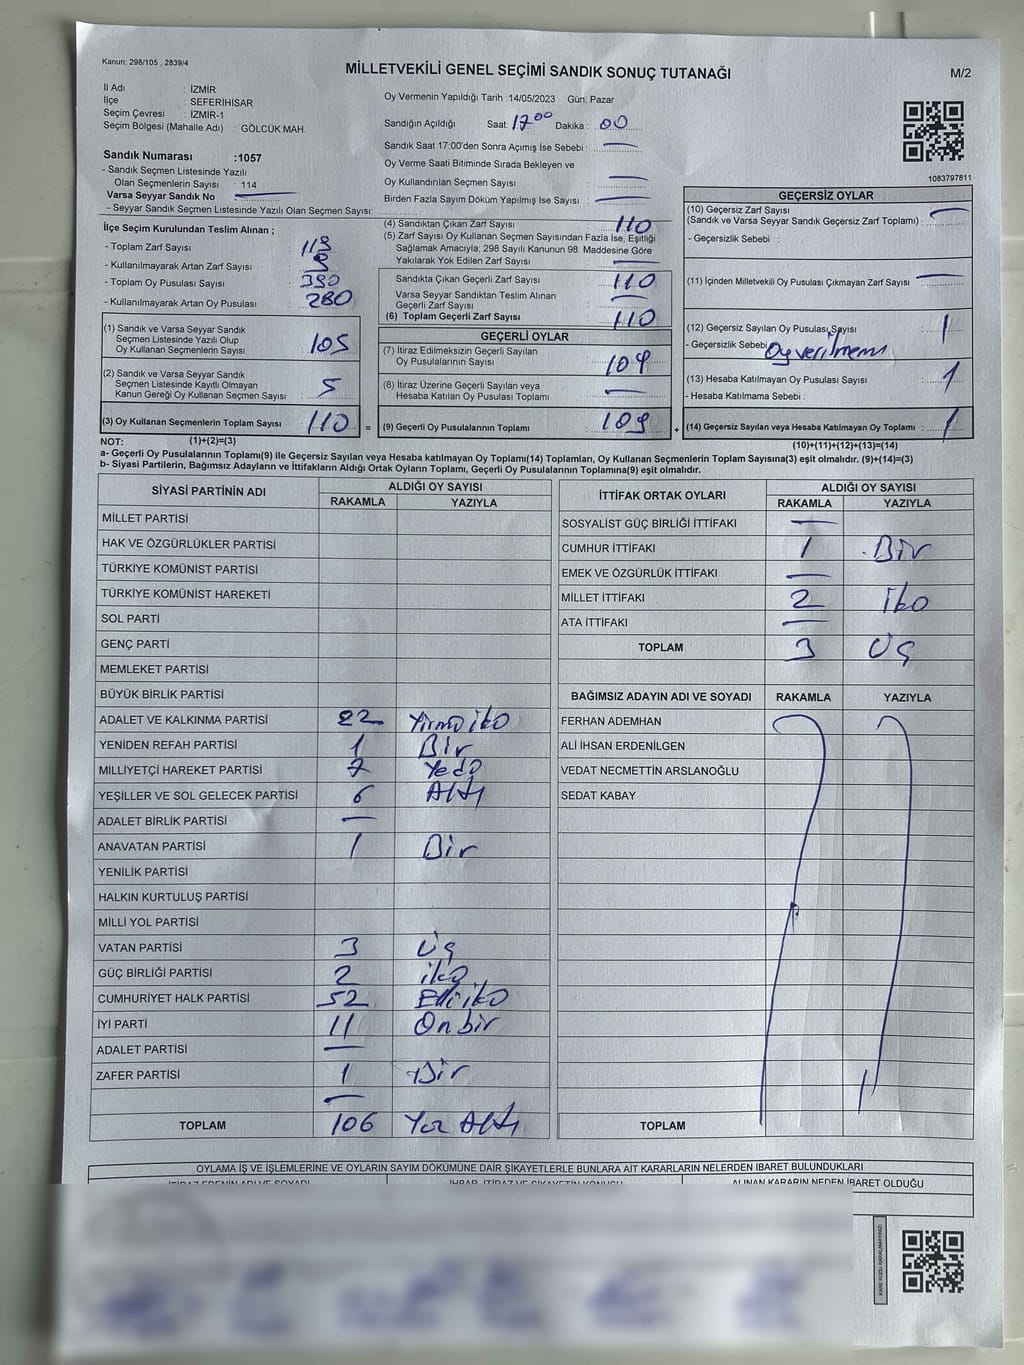 Kanun; 298/105 , 2839/4
MİLLETVEKİLİ GENEL SEÇİMİ SANDIK SONUÇ TUTANAĞI
M/2
İl Adı : İZMİR
İlçe : SEFERİHİSAR
Seçim Çevresi : İZMİR-1
Seçim Bölgesi (Mahalle Adı) : GÖLCÜK MAH.
Sandık Numarası :1057
- Sandık Seçmen Listesinde Yazılı
Olan Seçmenlerin Sayısı : 114
Varsa Seyyar Sandık No
- Seyyar Sandık Seçmen Listesinde Yazılı Olan Seçmen Sayısı:
Oy Vermenin Yapıldığı Tarih :14/05/2023 Gün: Pazar
Sandığın Açıldığı Saat: 17 00 Dakika : 00
Sandık Saat 17:00'den Sonra Açımış İse Sebebi : —
Oy Verme Saati Bitiminde Sırada Bekleyen ve
Oy Kullandırılan Seçmen Sayısı : —
Birden Fazla Sayım Döküm Yapılmış İse Sayısı : —
1083797811
İlçe Seçim Kurulundan Teslim Alınan ;
- Toplam Zarf Sayısı :
- Kullanılmayarak Artan Zarf Sayısı :
- Toplam Oy Pusulası Sayısı :
- Kullanılmayarak Artan Oy Pusulası : 280
(1) Sandık ve Varsa Seyyar Sandık
Seçmen Listesinde Yazılı Olup
Oy Kullanan Seçmenlerin Sayısı : 105
(2) Sandık ve Varsa Seyyar Sandık
Seçmen Listesinde Kayıtlı Olmayan
Kanun Gereği Oy Kullanan Seçmen Sayısı : 5
(3) Oy Kullanan Seçmenlerin Toplam Sayısı : 110 =
(4) Sandıktan Çıkan Zarf Sayısı : 110
(5) Zarf Sayısı Oy Kullanan Seçmen Sayısından Fazla İse, Eşitliği
Sağlamak Amacıyla; 298 Sayılı Kanunun 98. Maddesine Göre
Yakılarak Yok Edilen Zarf Sayısı : —
Sandıkta Çıkan Geçerli Zarf Sayısı : 110
Varsa Seyyar Sandıktan Teslim Alınan
Geçerli Zarf Sayısı : —
(6) Toplam Geçerli Zarf Sayısı : 110
GEÇERLİ OYLAR
(7) İtiraz Edilmeksizin Geçerli Sayılan
Oy Pusulalarının Sayısı : 109
(8) İtiraz Üzerine Geçerli Sayılan veya
Hesaba Katılan Oy Pusulası Toplamı : —
(9) Geçerli Oy Pusulalarının Toplamı : 109 +
GEÇERSİZ OYLAR
(10) Geçersiz Zarf Sayısı
(Sandık ve Varsa Seyyar Sandık Geçersiz Zarf Toplamı) : —
- Geçersizlik Sebebi :
(11) İçinden Milletvekili Oy Pusulası Çıkmayan Zarf Sayısı : —
(12) Geçersiz Sayılan Oy Pusulası Sayısı : 1
- Geçersizlik Sebebi :
(13) Hesaba Katılmayan Oy Pusulası Sayısı : 1
- Hesaba Katılmama Sebebi :
(14) Geçersiz Sayılan veya Hesaba Katılmayan Oy Toplamı : 1
NOT: (1)+(2)=(3)
(10)+(11)+(12)+(13)=(14)
a- Geçerli Oy Pusulalarının Toplamı(9) ile Geçersiz Sayılan veya Hesaba katılmayan Oy Toplamı(14) Toplamları, Oy Kullanan Seçmenlerin Toplam Sayısına(3) eşit olmalıdır. (9)+(14)=(3)
b- Siyasi Partilerin, Bağımsız Adayların ve İttifakların Aldığı Ortak Oyların Toplamı, Geçerli Oy Pusulalarının Toplamına(9) eşit olmalıdır.
SİYASİ PARTİNİN ADI ALDIĞI OY SAYISI
RAKAMLA YAZIYLA
MİLLET PARTİSİ
HAK VE ÖZGÜRLÜKLER PARTİSİ
TÜRKİYE KOMÜNİST PARTİSİ
TÜRKİYE KOMÜNİST HAREKETİ
SOL PARTİ
GENÇ PARTİ
MEMLEKET PARTİSİ
BÜYÜK BİRLİK PARTİSİ
ADALET VE KALKINMA PARTİSİ 22 Yirmi iki
YENİDEN REFAH PARTİSİ 1 Bir
MİLLİYETÇİ HAREKET PARTİSİ 7 Yedi
YEŞİLLER VE SOL GELECEK PARTİSİ 6 Altı
ADALET BİRLİK PARTİSİ —
ANAVATAN PARTİSİ 1 Bir
YENİLİK PARTİSİ
HALKIN KURTULUŞ PARTİSİ
MİLLİ YOL PARTİSİ
VATAN PARTİSİ 3 Üç
GÜÇ BİRLİĞİ PARTİSİ 2 iki
CUMHURİYET HALK PARTİSİ 52 Elli iki
İYİ PARTİ 11 Onbir
ADALET PARTİSİ —
ZAFER PARTİSİ 1 Bir
—
TOPLAM 106 Yüz Altı
İTTİFAK ORTAK OYLARI ALDIĞI OY SAYISI
RAKAMLA YAZIYLA
SOSYALİST GÜÇ BİRLİĞİ İTTİFAKI —
CUMHUR İTTİFAKI 1 Bir
EMEK VE ÖZGÜRLÜK İTTİFAKI —
MİLLET İTTİFAKI 2 İki
ATA İTTİFAKI —
TOPLAM 3 Üç
BAĞIMSIZ ADAYIN ADI VE SOYADI RAKAMLA YAZIYLA
FERHAN ADEMHAN
ALİ İHSAN ERDENİLGEN
VEDAT NECMETTİN ARSLANOĞLU
SEDAT KABAY
TOPLAM
OYLAMA İŞ VE İŞLEMLERİNE VE OYLARIN SAYIM DÖKÜMÜNE DAİR ŞİKAYETLERLE BUNLARA AİT KARARLARIN NELERDEN İBARET BULUNDUKLARI
İTİRAZ EDENİN ADI VE SOYADI İHBAR, İTİRAZ VE ŞİKAYETİN KONUSU ALINAN KARARIN NEDEN İBARET OLDUĞU
KARE KODU KARALAMAYINIZ!